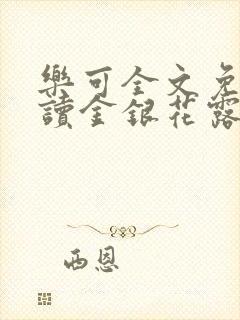 樂可全文免
讀金銀花露
西恩